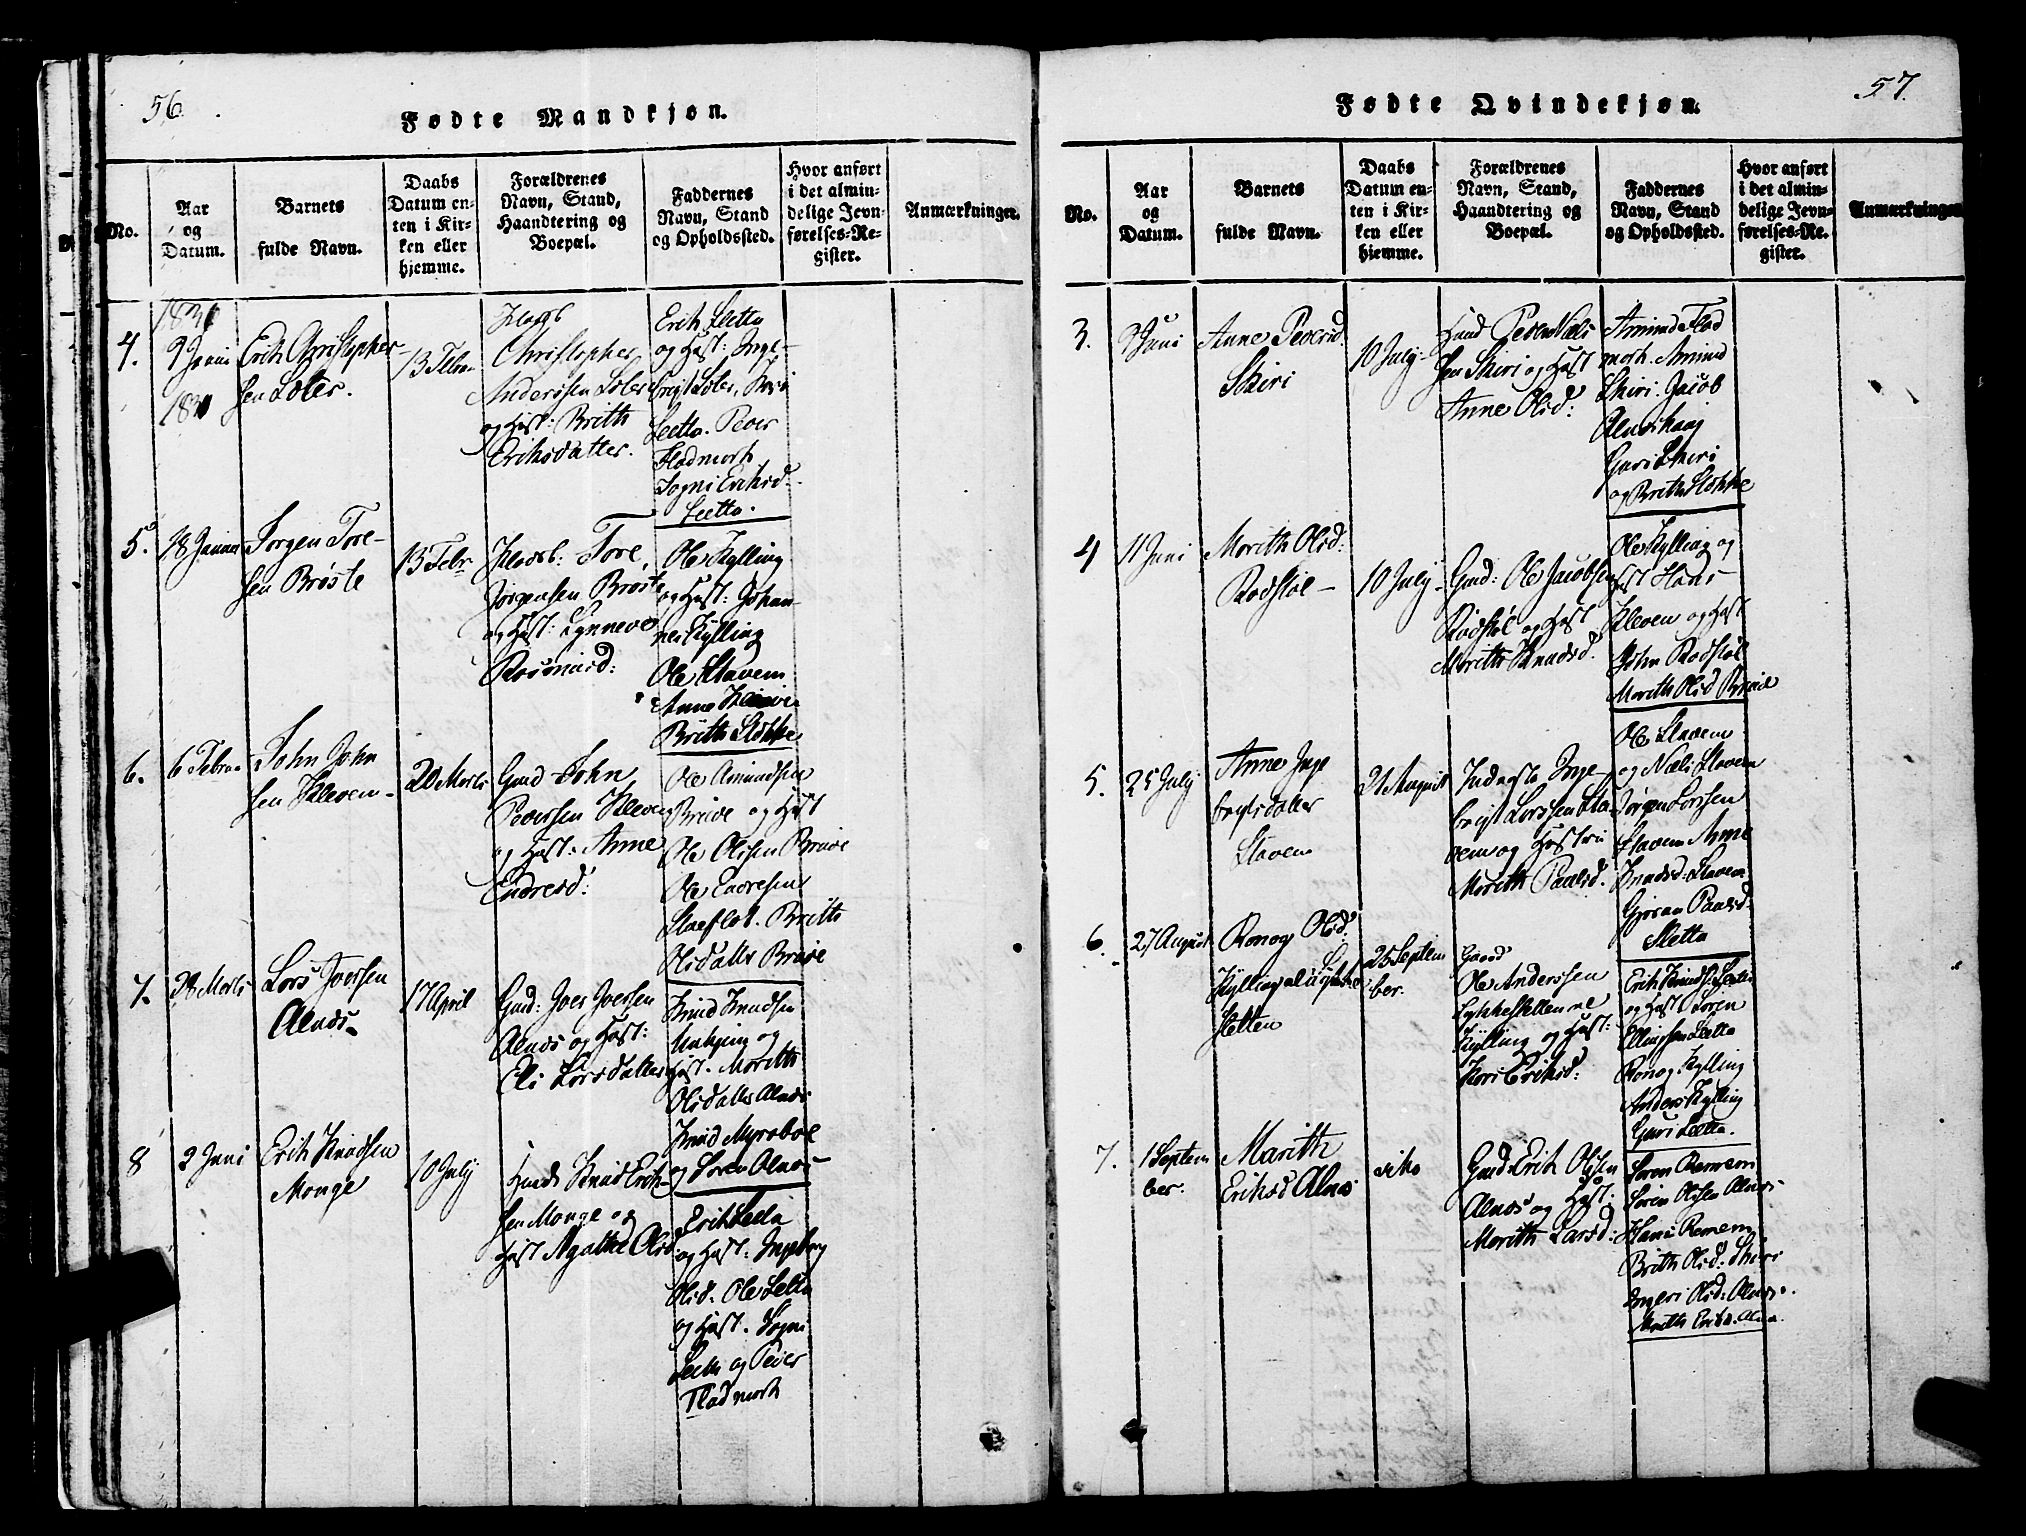 56.
Fødte Mandkjøn.
No.
Aar
og
Datum.
Barnets
fulde Navn.
Daabs
Datum en-
ten i Kir-
ken eller
hjemme.
Forældrenes
Navn, Stand,
Haandtering og
Boepæl.
Faddernes
Navn, Stand
og Opholdssted.
Hvor anført
i det almin-
delige Jevn-
førelses-Re-
gister.
Anmærkninger.
4.
1831
9 Janu
1831
Erik Christopher-
sen Sæter.
13 Febr
Christopher
Anderssen Sæter
og Hust: Brith
Eriksdatter.
Erik Sletta
og Hust: Inge-
Sletta. Peder
Fladmark
Sogni Eriksd.
Sletta.
5.
18 Januar
Jørgen Tore-
sen Brøste
13 Febr
Tore
Jørgensen Brøste
og Hust:
Rasmusd:
Ole Kylling
og Hust: Johan-
nes Kylling
Ole Stavem
Anne
Brith Stokke
6.
6 Febru
John John
sen Kleven-
20 Marts
Gmd John
Pedersen Kleven
og Hust: Anne
Endresd:
Ole Amundsen
Brude og Hust
Ole Olsen Brude
Ole Endresen
Olsdatter Brude
7.
28 Marts
Lars Joersen
Alnæs
17 April
Gmd: Joer Joersen
Alnæs og Hust:
Eli Larsdatter
Knud Knudsen
og
Hust. Marith
Olsdatter Alnæs
Knud Myrebøe
og Søren Alnæs
8
2 Juni
Erik Knudsen
Monge
10 July
Huusm: Knud Erik-
sen Monge og
Hust Agathe Olsd
Erik Sletta
og Hust: Ingeborg
Olsd. Ole Sletta
og Hust. Sogni
Sletta og Peder
Fladmark
57.
Fødte Qvindekjøn.
No.
Aar
og
Datum.
Barnets
fulde Navn.
Daabs
Datum en-
ten i Kir-
ken eller
hjemme.
Forældrenes
Navn, Stand,
Haandtering og
Boepæl.
Faddernes
Navn, Stand
og Opholdssted.
Hvor anført
i det almin-
delige Jevn-
førelses-Re-
gister.
Anmærkninger
3.
Juni
Anne Pedersd.
Skiri
10 July-
Peder Niels
sen Skiri og Hust
Anne Olsd:
Amund Flad
mark. Amund
Skiri. Jacob
Guri Skiri
og Brith Stokke
4
11 Juni
Marith Olsd:
Rødstøl-
10 July-
Gmd: Ole Jacobsen
Rødstøl og Hust
Marith Knudsd.
Ole Kylling og
Hust Hans
Kleven og Hust
John Rødstøl
Marith Olsd Brude
5.
25 July
Anne Inge
brigtsdatter
Stavem
21 August
Inderste Inge-
brigt Larssen Sta-
vem og Hustru
Marith Paalsd.
Ole Stavem
og Niels Stavem
Jørgen Larssen
Stavem Anne
Knudsd. Stavem
Gjøran Paalsd.
Sletta
6.
27 August
Ronog Olsd.
Kylling
stellen
25 Septem
ber.
Gaard
Ole Anderssen
Lykkestellenne
Kylling og Hust:
Kari Eriksd:
Erik Knudss: Sletta
og Hust Søren
Ellingsen Sletta
Ronog Kylling
Anders Kylling
Guri Sletta.
7.
1 Septem
ber.
Marith
Eriksd Alnæs
dito
Gmd: Erik Olsen
Alnæs og Hust:
Marith Larsd:
Søren Remem
Søren Olsen Alnæs
Hans Remem
Brith Olsd. Skiri
Ingeri Olsd: Alnæs.
Marith Eriksd. Alnæs.